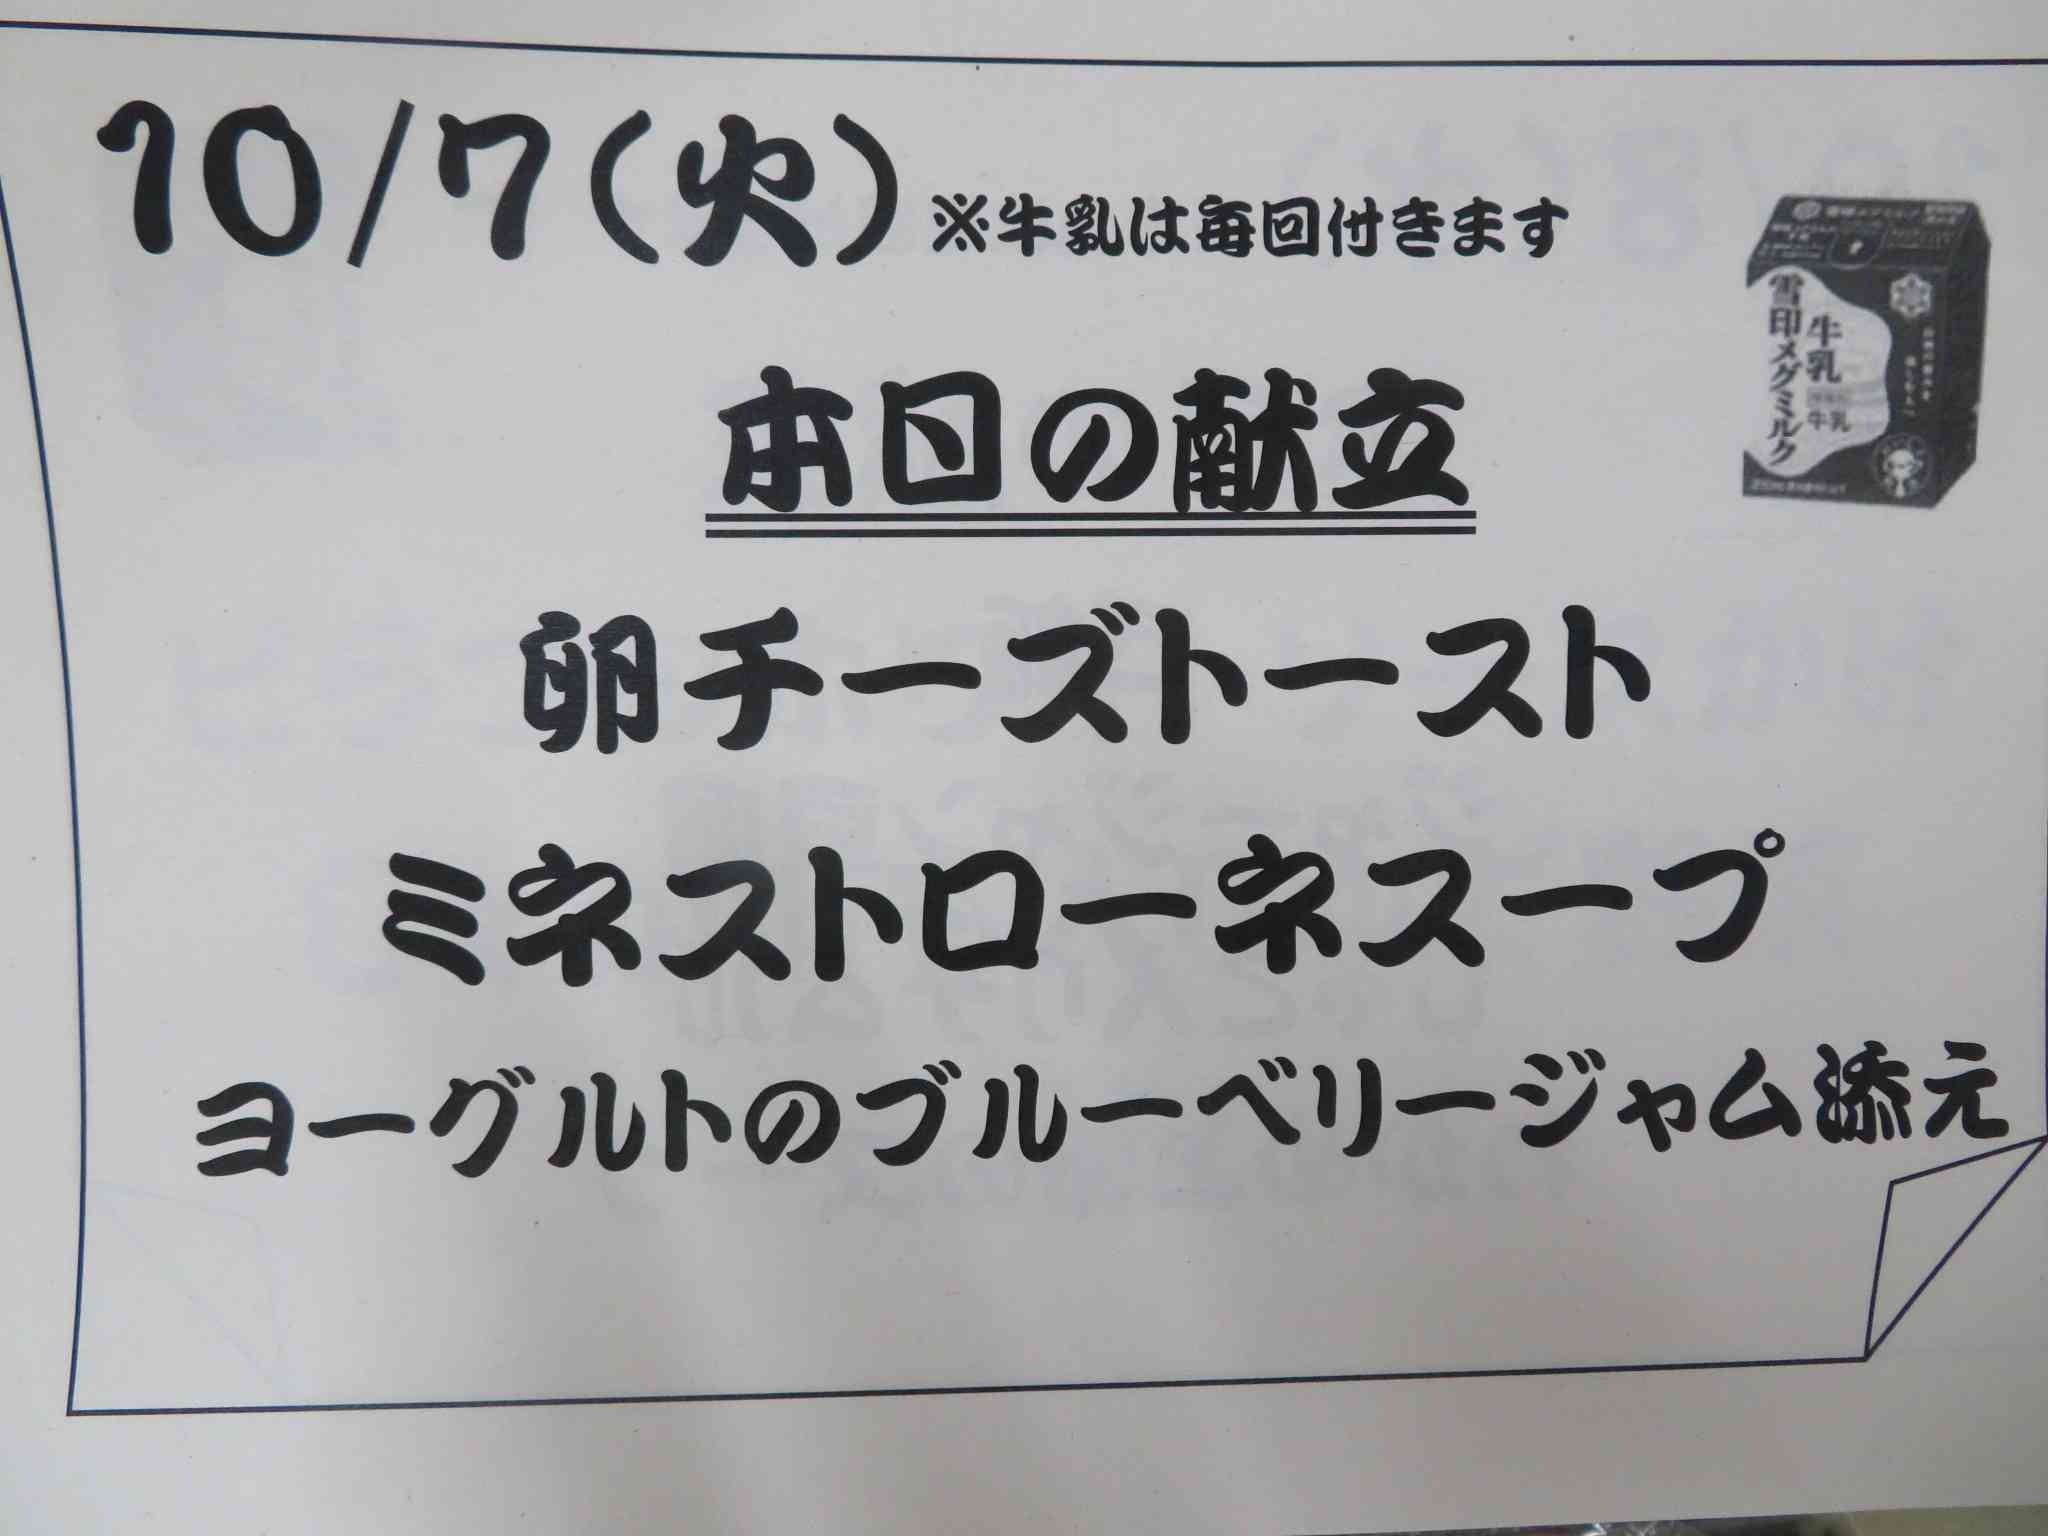 10/7(火) ※牛乳は毎回付きます
本日の献立
卵チーズトースト
ミネストローネスープ
ヨーグルトのブルーベリージャム添え
雪印メグミルク
牛乳
牛乳